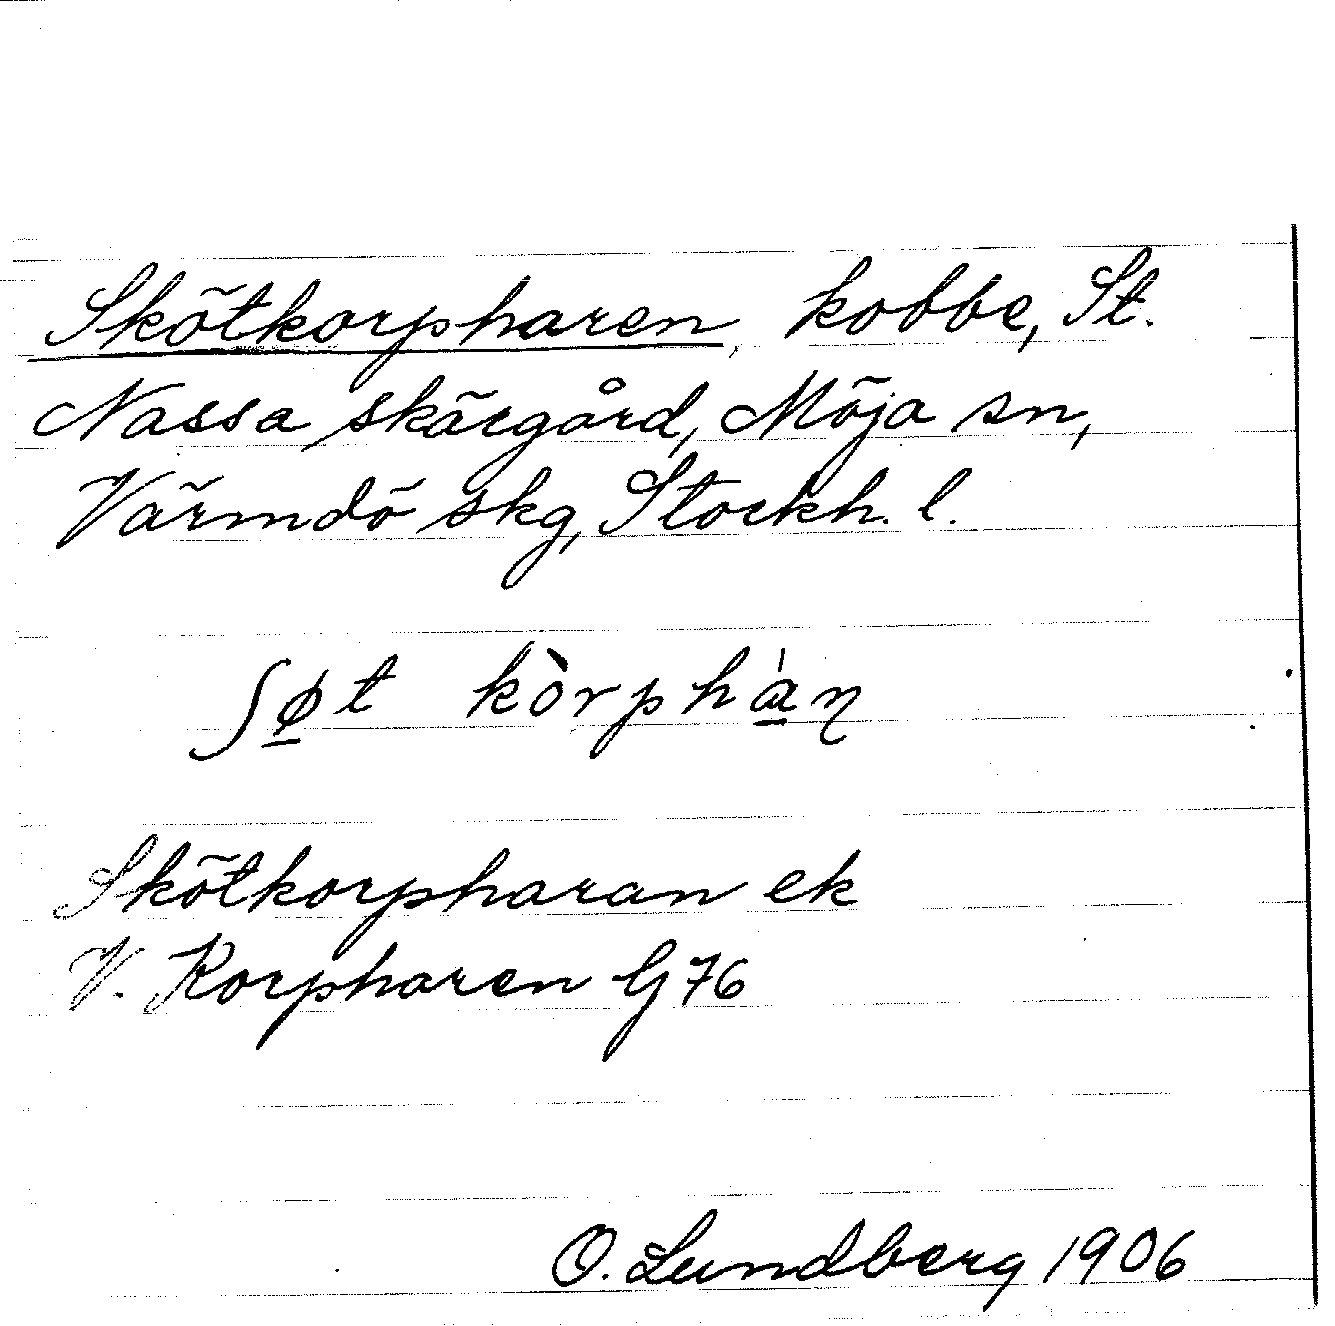 Skötkorpharen, kobbe, St.
Nassa skärgård, Möja sn,
Värmdö skg, Stockh. l.
ʃø̲t kòrpha̲̍ɳ
Skötkorpharan ek
V. Korpharen G 76
O. Lundberg 1906